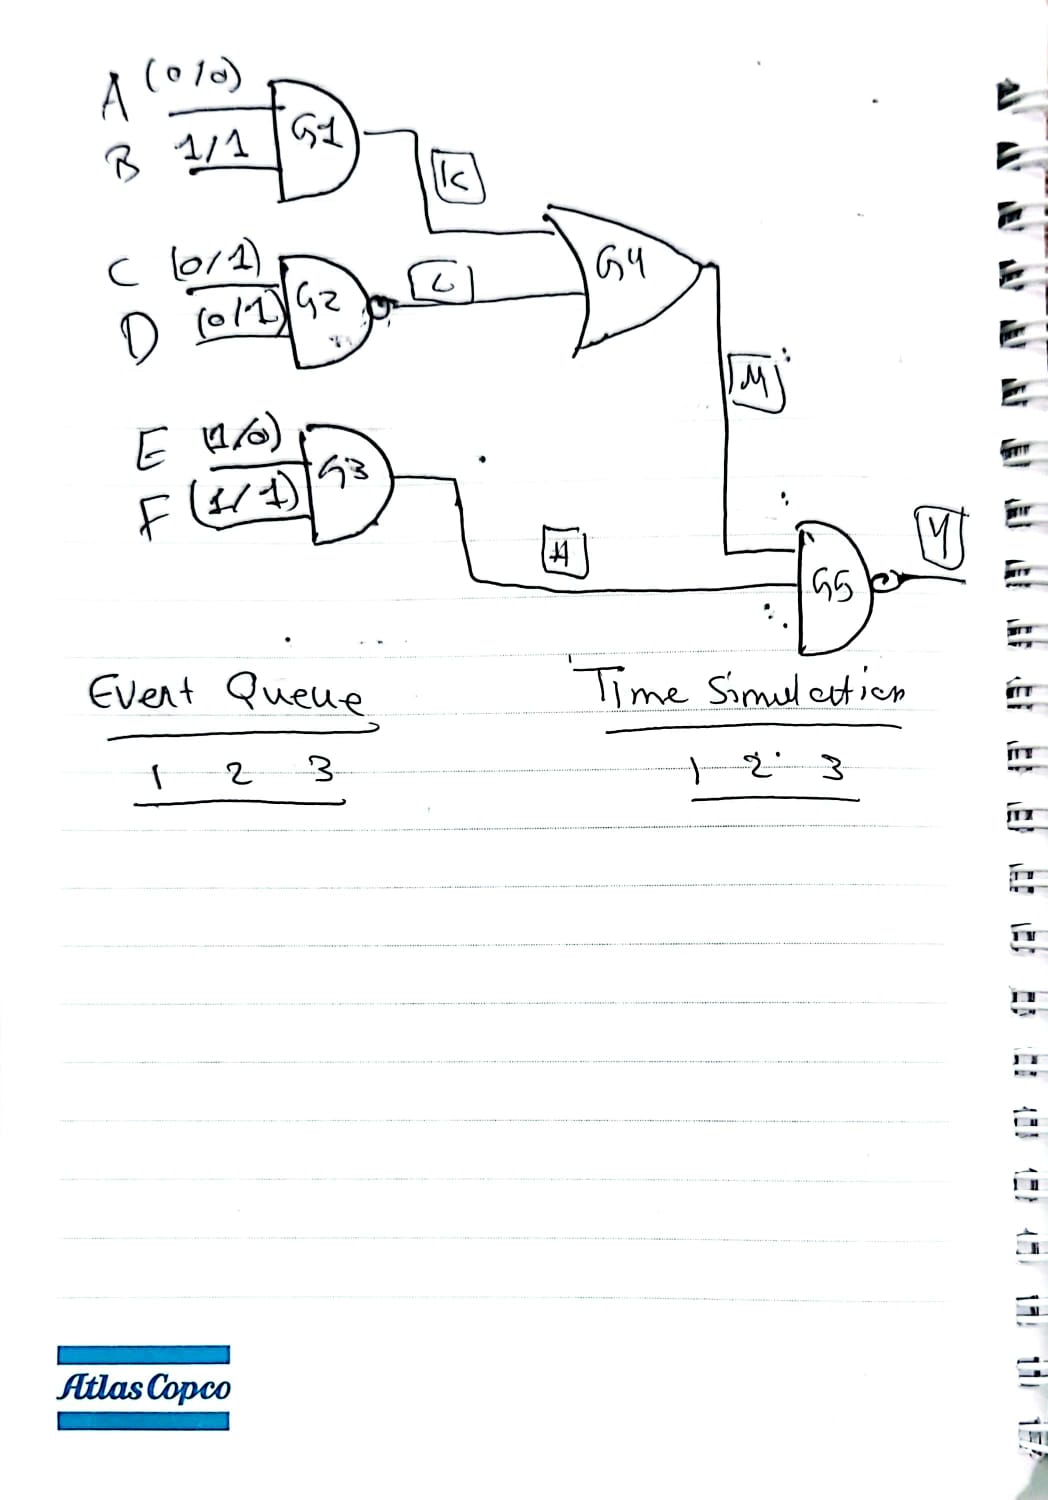 A (0/0)
B 1/1
G1
K
C (0/1)
D (0/1)
G2
L
G4
M
E (1/0)
F (1/1)
G3
H
G5
Y
Event Queue
Time Simulation
1 2 3
1 2 3
Atlas Copco